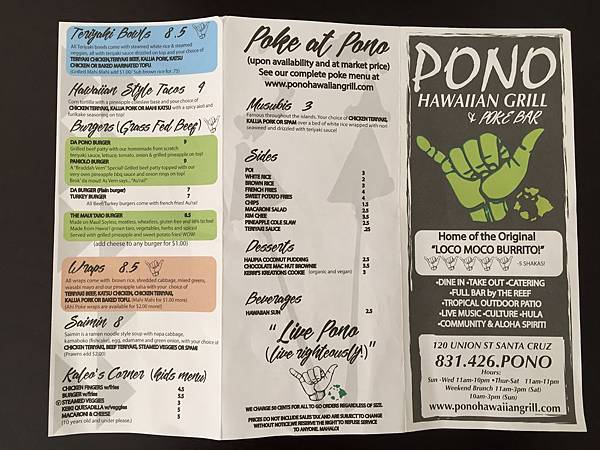 Teriyaki Bowls 8.5
All Teriyaki bowls come with steamed white rice & steamed
veggies, all with teriyaki sauce drizzled on top and your choice of
TERIYAKI CHICKEN, TERIYAKI BEEF, KALUA PORK, KATSU
CHICKEN OR BAKED MARINATED TOFU.
(Grilled Mahi Mahi add $1.00/ Sub brown rice for .75)
Hawaiian Style Tacos 9
Corn tortilla with a pineapple coleslaw base and your choice of
CHICKEN TERIYAKI, KALUA PORK OR MAHI KATSU with a spicy aioli and
furikake seasoning on top!
Burgers (Grass Fed Beef)
DA PONO BURGER 9
Grilled beef patty with our homemade from scratch
teriyaki sauce, lettuce, tomato, onion & grilled pineapple on top!
PANIOLO BURGER 9
A "Braddah Vern" Special! Grilled beef patty topped with our
very own pineapple bbq sauce and onion rings on top!
Brok' da mout! As Vern says..."Au'ra!"
DA BURGER (Plain burger) 7
TURKEY BURGER 7
All Beef/Turkey burgers come with french fries! Au'ra!
THE MAUI TARO BURGER 8.5
Made on Maui! Soyless, meatless, wheatless, gluten free and
Made from Hawai'i grown taro, vegetables, herbs and spices!
Served with grilled pineapple and sweet potato fries! WOW!
(add cheese to any burger for $1.00)
Wraps 8.5
All wraps come with brown rice, shredded cabbage, mixed greens,
wasabi mayo and sauce plus your choice of
TERIYAKI BEEF, KATSU CHICKEN, CHICKEN TERIYAKI,
KALUA PORK OR BAKED TOFU. (Mahi Mahi for $1.00 more)
(Ahi Poke wraps are available for $2.00 more)
Saimin 8
Saimin is a ramen noodle style soup with napa cabbage,
kamaboko (fishcake), egg, edamame and green onion, with your choice of
CHICKEN TERIYAKI, BEEF TERIYAKI, STEAMED VEGGIES OR SPAM!
(Prawns add $2.00)
Kaleo's Corner (kids menu)
CHICKEN FINGERS w/fries 4.5
BURGER w/fries 5.5
STEAMED VEGGIES 3
KEIKI QUESADILLA w/veggies 5
MACARONI & CHEESE 5
(10 years old and under please.)
Poke at Pono
(upon availability and at market price)
See our complete poke menu at
www.ponohawaiiangrill.com
Musubis 3
Famous throughout the islands. Your choice of CHICKEN TERIYAKI,
KALUA PORK OR SPAM over a bed of white rice wrapped with nori
seaweed and drizzled with teriyaki sauce!
Sides
POI 3
WHITE RICE 2
BROWN RICE 3
FRENCH FRIES 4
SWEET POTATO FRIES 4
CHIPS 1.5
MACARONI SALAD 2.5
KIM CHEE 3.5
PINEAPPLE COLE SLAW 2.5
TERIYAKI SAUCE .25
Desserts
HAUPIA COCONUT PUDDING 2.5
CHOCOLATE MAC NUT BROWNIE 2.5
KERRI'S KREATIONS COOKIE (organic and vegan) 3
Beverages
HAWAIIAN SUN 2.5
"Live Pono
(live righteously!)"
WE CHARGE 50 CENTS FOR ALL TO GO ORDERS REGARDLESS OF SIZE.
PRICES DO NOT INCLUDE SALES TAX AND ARE SUBJECT TO CHANGE
WITHOUT NOTICE. WE RESERVE THE RIGHT TO REFUSE SERVICE
TO ANYONE. MAHALO!
PONO
HAWAIIAN GRILL
& POKE BAR
Home of the Original
"LOCO MOCO BURRITO!"
-5 SHAKAS!
•DINE IN •TAKE OUT •CATERING
•FULL BAR by THE REEF
•TROPICAL OUTDOOR PATIO
•LIVE MUSIC •CULTURE •HULA
•COMMUNITY & ALOHA SPIRIT!
120 UNION ST SANTA CRUZ
831.426.PONO
Hours:
Sun -Wed 11am-10pm •Thur-Sat 11am-11pm
Weekend Brunch 11am-3pm (Sat)
10am-3pm (Sun)
www.ponohawaiiangrill.com